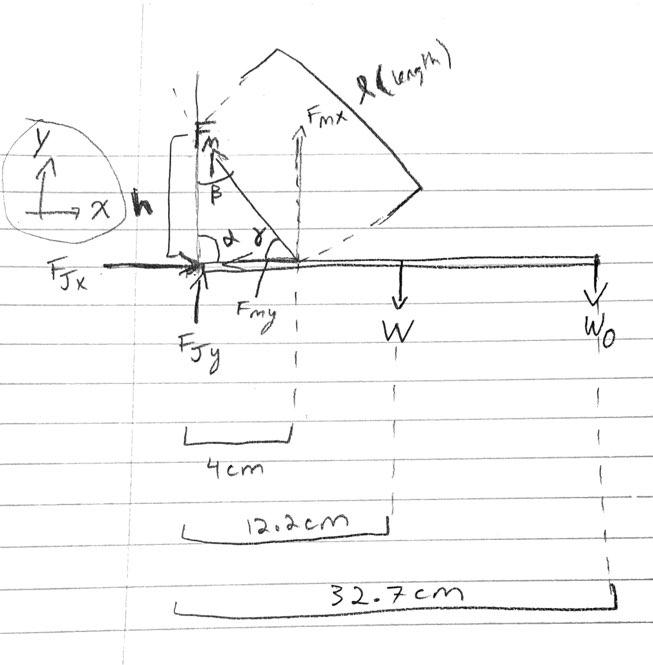 l (length)
F_mx
F_m
y
x
h
β
α
γ
F_Jx
F_my
F_Jy
W
W_0
4cm
12.2cm
32.7cm